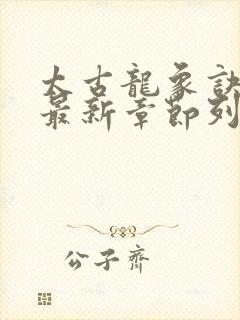 太古龍象訣
最新章節列
公子齊